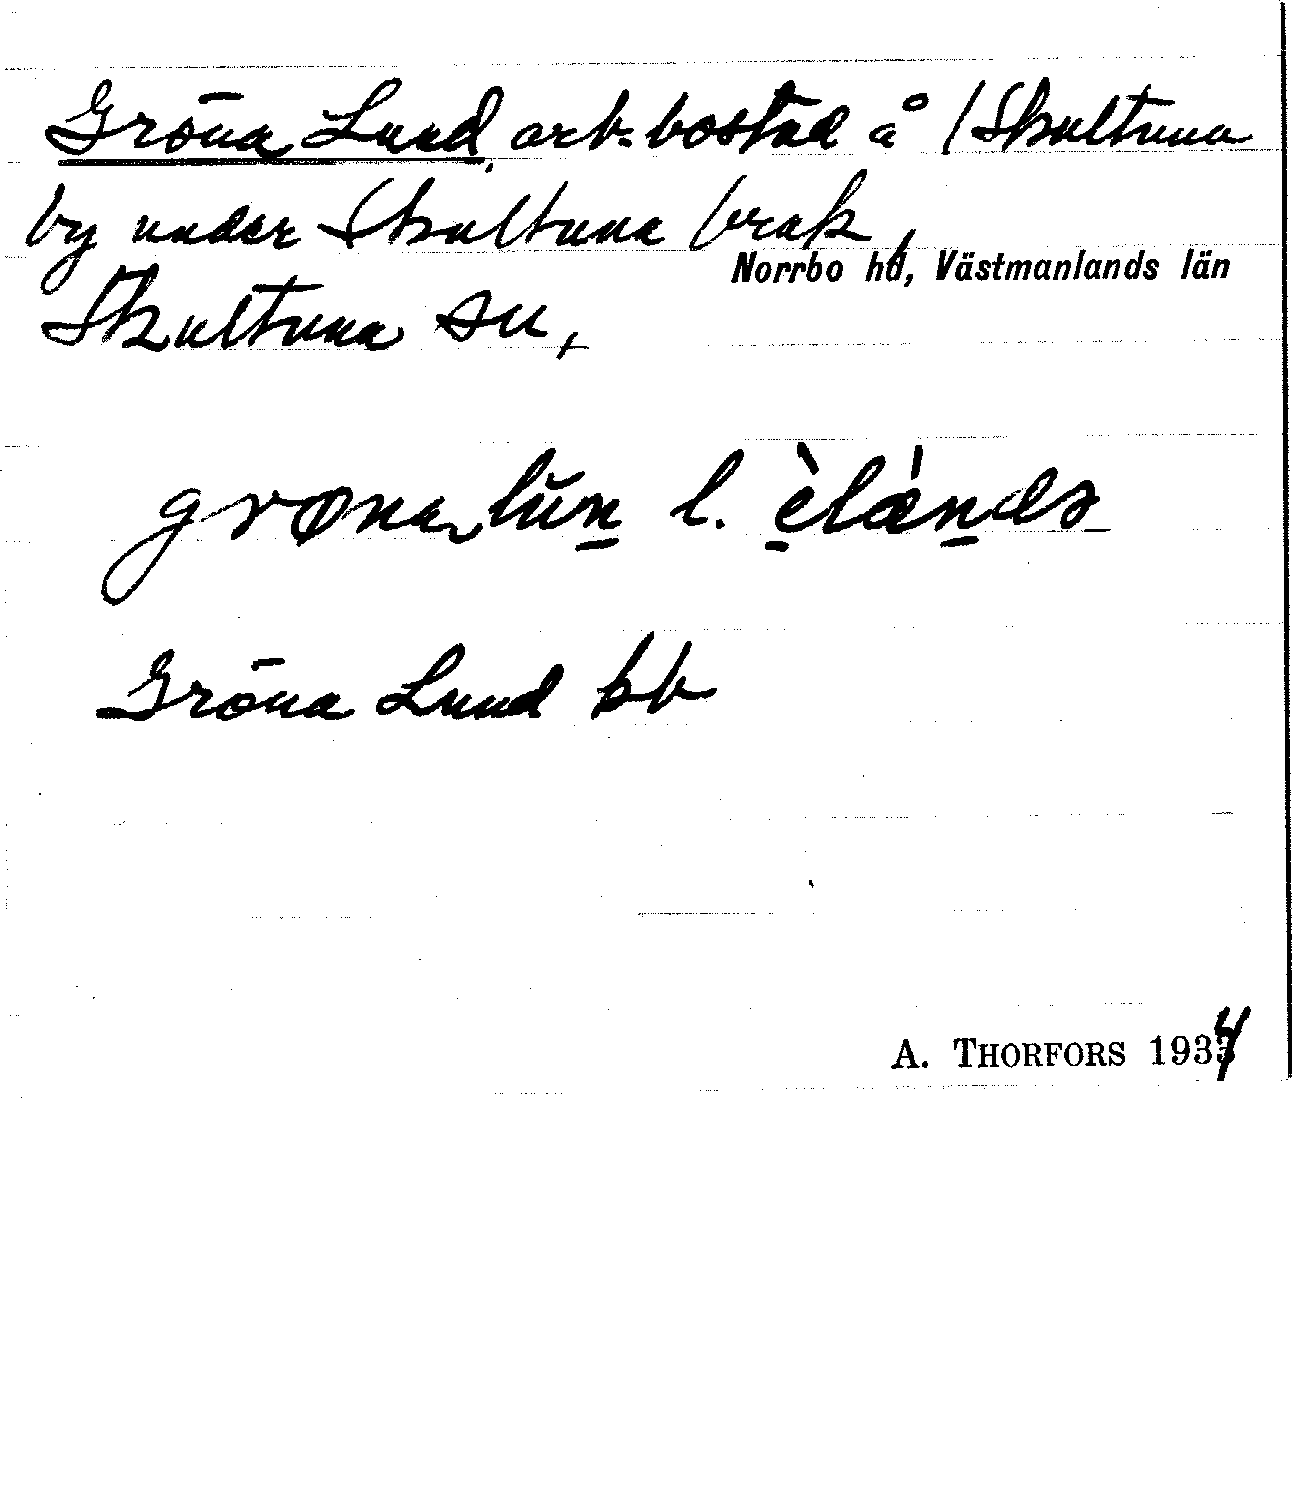 Gröna Lund, arb. bostad å Skultuna
by under Skultuna bruk,
Norrbo hd, Västmanlands län
Skultuna sn,
grøna lŭn l. èlánds
Gröna Lund kb
A. THORFORS 1934